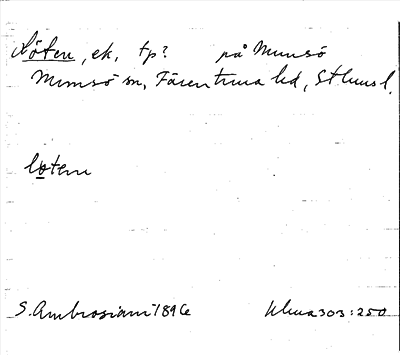 Löten, ek, tp? på Munsö
Munsö sn, Färentuna hd, Sthlms l.
løten
S. Ambrosiani 1896 Ulma 303:250